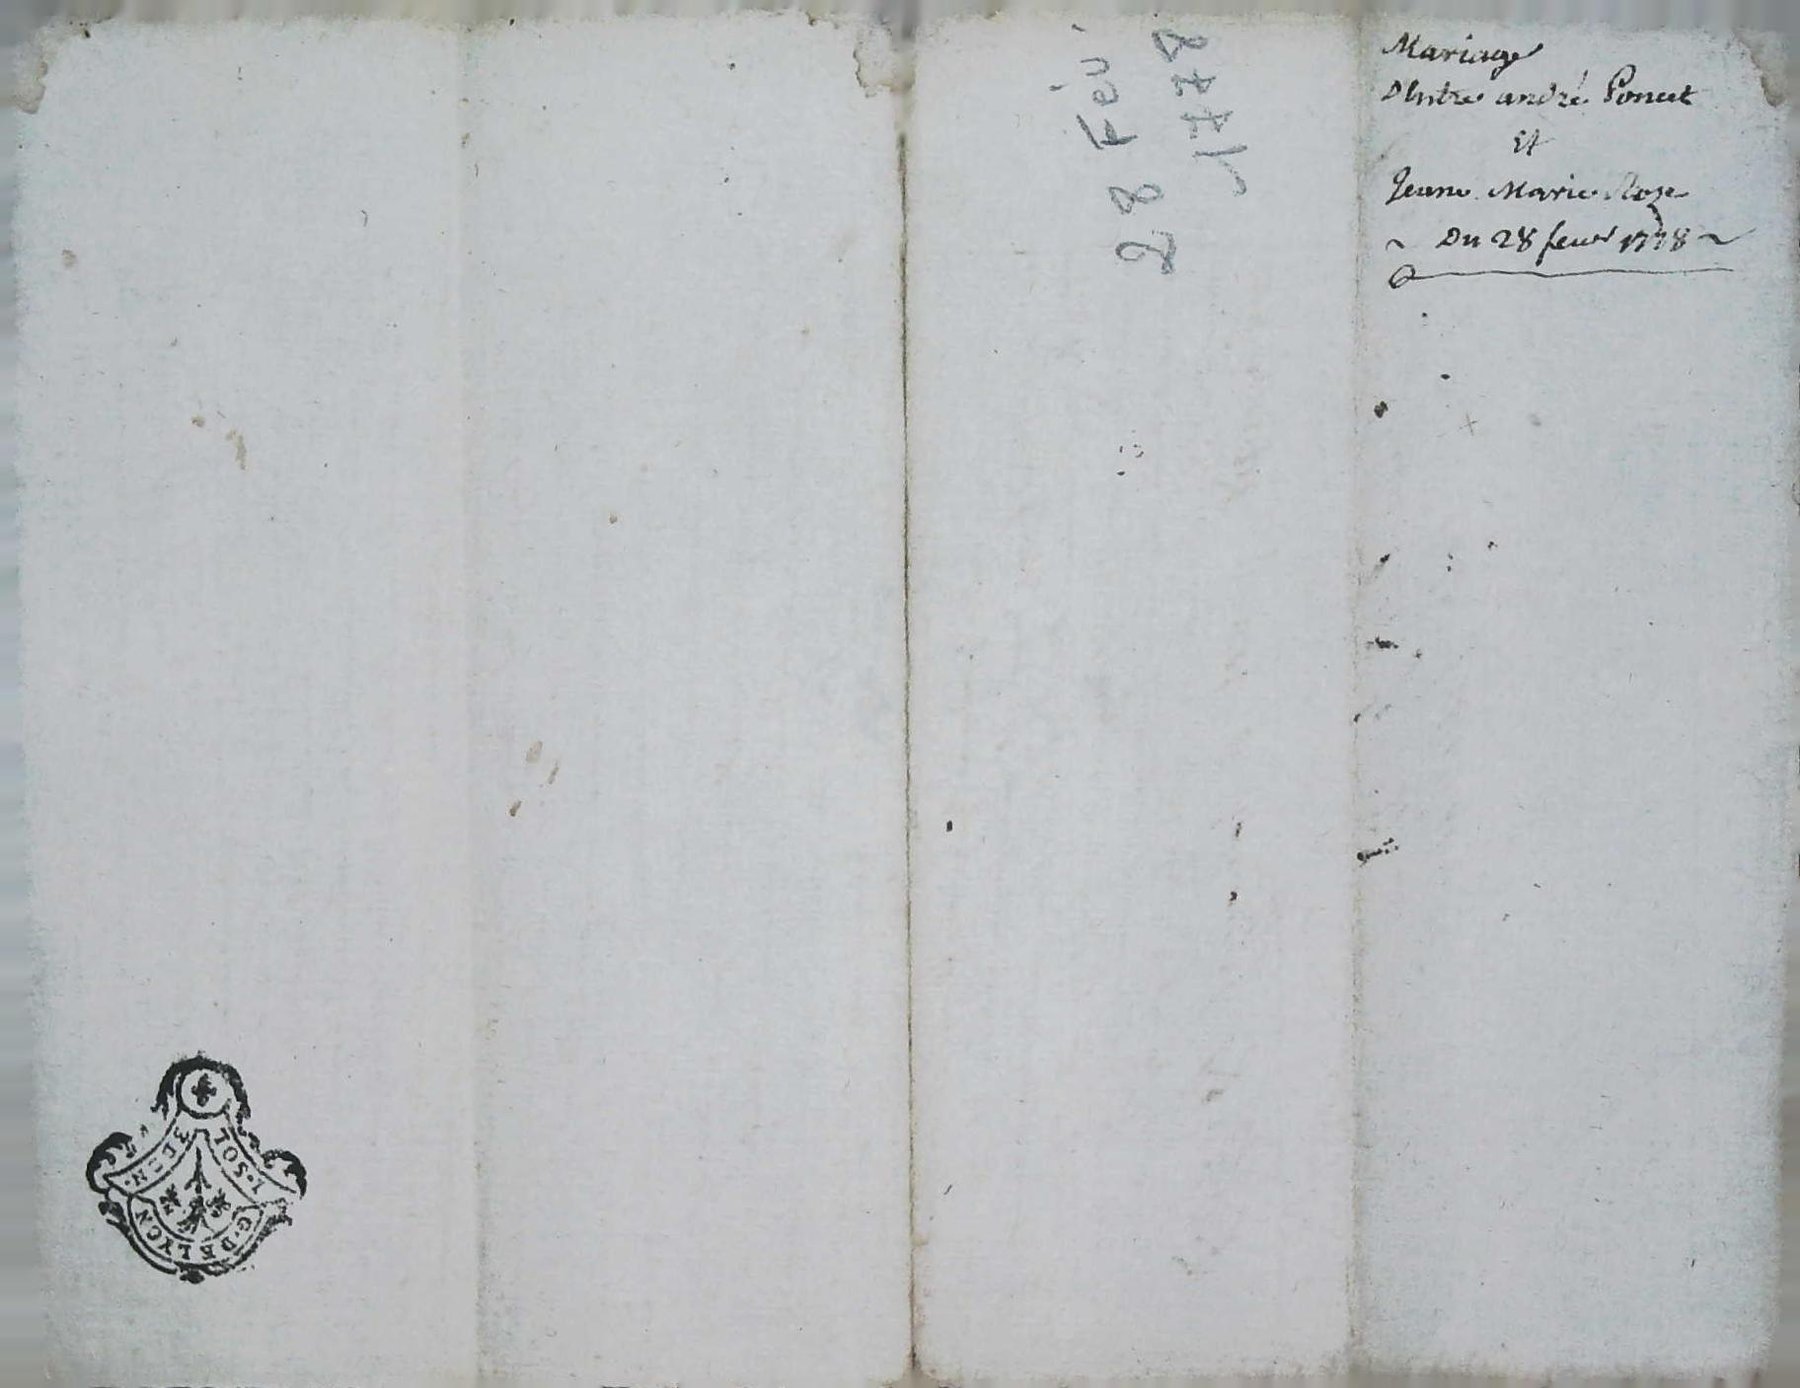 Mariage
D'Entre andré Poncet
Et
Jeane Marie Roze
~ Du 28 feur 1778 ~
28 Fév.
1778
1. SOL
3 DEN.
G. DE LYON